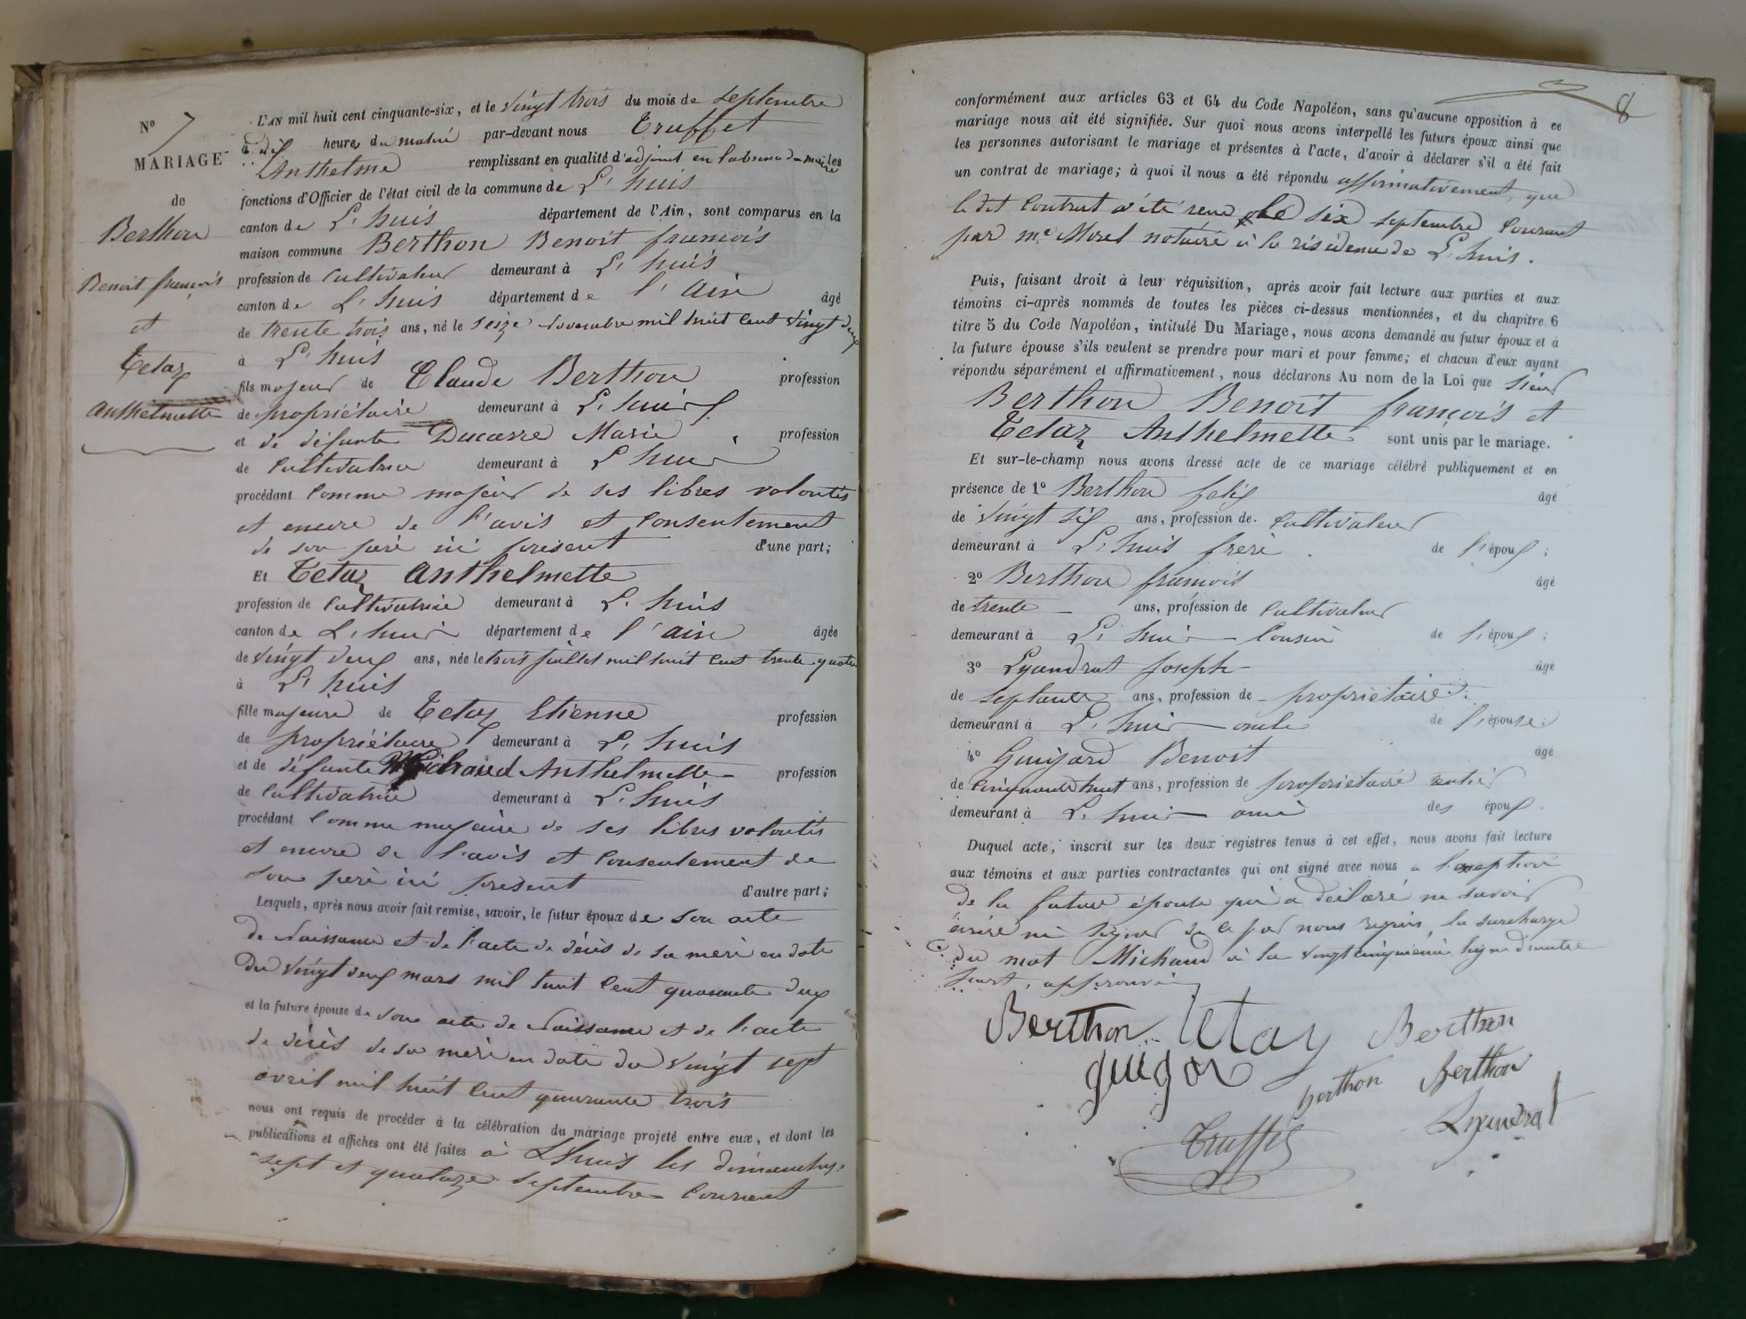 N° 7
MARIAGE
de
Berthon
Benoit françois
et
Tetaz
Anthelmette
L'AN mil huit cent cinquante-six, et le vingt trois du mois de septembre
à dix heures du matin par-devant nous Truffet
Anthelme remplissant en qualité d'adjoint en l'absence du maire les
fonctions d'Officier de l'état civil de la commune de L'huis
canton de L'huis département de l'Ain, sont comparus en la
maison commune Berthon Benoit françois
profession de cultivateur demeurant à L'huis
canton de L'huis département de l'Ain âgé
de trente trois ans, né le seize novembre mil huit cent vingt deux
à L'huis
fils majeur de Claude Berthon profession
de propriétaire demeurant à L'huis
et de défunte Ducarre Marie profession
de cultivatrice demeurant à L'huis
procédant comme majeur de ses libres volontés
et encore de l'avis et consentement
de son père ici présent d'une part;
Et Tetaz Anthelmette
profession de cultivatrice demeurant à L'huis
canton de L'huis département de l'ain âgée
de vingt deux ans, née le trois juillet mil huit cent trente quatre
à L'huis
fille majeure de Tetaz Etienne profession
de propriétaire demeurant à L'huis
et de défunte Michaud Anthelmette profession
de cultivatrice demeurant à L'huis
procédant comme majeure de ses libres volontés
et encore de l'avis et consentement de
son père ici présent d'autre part;
Lesquels, après nous avoir fait remise, savoir, le futur époux de son acte
de Naissance et de l'acte de décès de sa mère en date
du vingt deux mars mil huit cent quarante deux
et la future épouse de son acte de Naissance et de l'acte
de décès de sa mère en date du vingt sept
avril mil huit cent quarante trois
nous ont requis de procéder à la célébration du mariage projeté entre eux, et dont les
publications et affiches ont été faites à L'huis les dimanches
sept et quatorze septembre courant
8
conformément aux articles 63 et 64 du Code Napoléon, sans qu'aucune opposition à ce
mariage nous ait été signifiée. Sur quoi nous avons interpellé les futurs époux ainsi que
les personnes autorisant le mariage et présentes à l'acte, d'avoir à déclarer s'il a été fait
un contrat de mariage; à quoi il nous a été répondu affirmativement, que
le dit contrat a été reçu le six septembre courant
par me Morel notaire à la résidence de L'huis.
Puis, faisant droit à leur réquisition, après avoir fait lecture aux parties et aux
témoins ci-après nommés de toutes les pièces ci-dessus mentionnées, et du chapitre 6
titre 5 du Code Napoléon, intitulé Du Mariage, nous avons demandé au futur époux et à
la future épouse s'ils veulent se prendre pour mari et pour femme; et chacun d'eux ayant
répondu séparément et affirmativement, nous déclarons Au nom de la Loi que sieur
Berthon Benoit françois et
Tetaz Anthelmette sont unis par le mariage.
Et sur-le-champ nous avons dressé acte de ce mariage célébré publiquement et en
présence de 1° Berthon felix âgé
de vingt six ans, profession de cultivateur
demeurant à L'huis frère de l'époux;
2° Berthon françois âgé
de trente ans, profession de cultivateur
demeurant à L'huis cousin de l'époux;
3° Lyaudrat Joseph âgé
de septante ans, profession de propriétaire
demeurant à L'huis oncle de l'épouse;
4° Guigard Benoit âgé
de cinquante huit ans, profession de propriétaire rentier
demeurant à L'huis ami des époux.
Duquel acte, inscrit sur les deux registres tenus à cet effet, nous avons fait lecture
aux témoins et aux parties contractantes qui ont signé avec nous a l'exeption
de la future épouse qui a déclaré ne savoir
écrire ni signer de ce par nous requis, la surcharge
du mot Michaud à la vingt cinquieme ligne d'autre
part, approuvée
Berthon Tetaz Berthon
guigar berthon Berthon
Truffet Lyaudrat